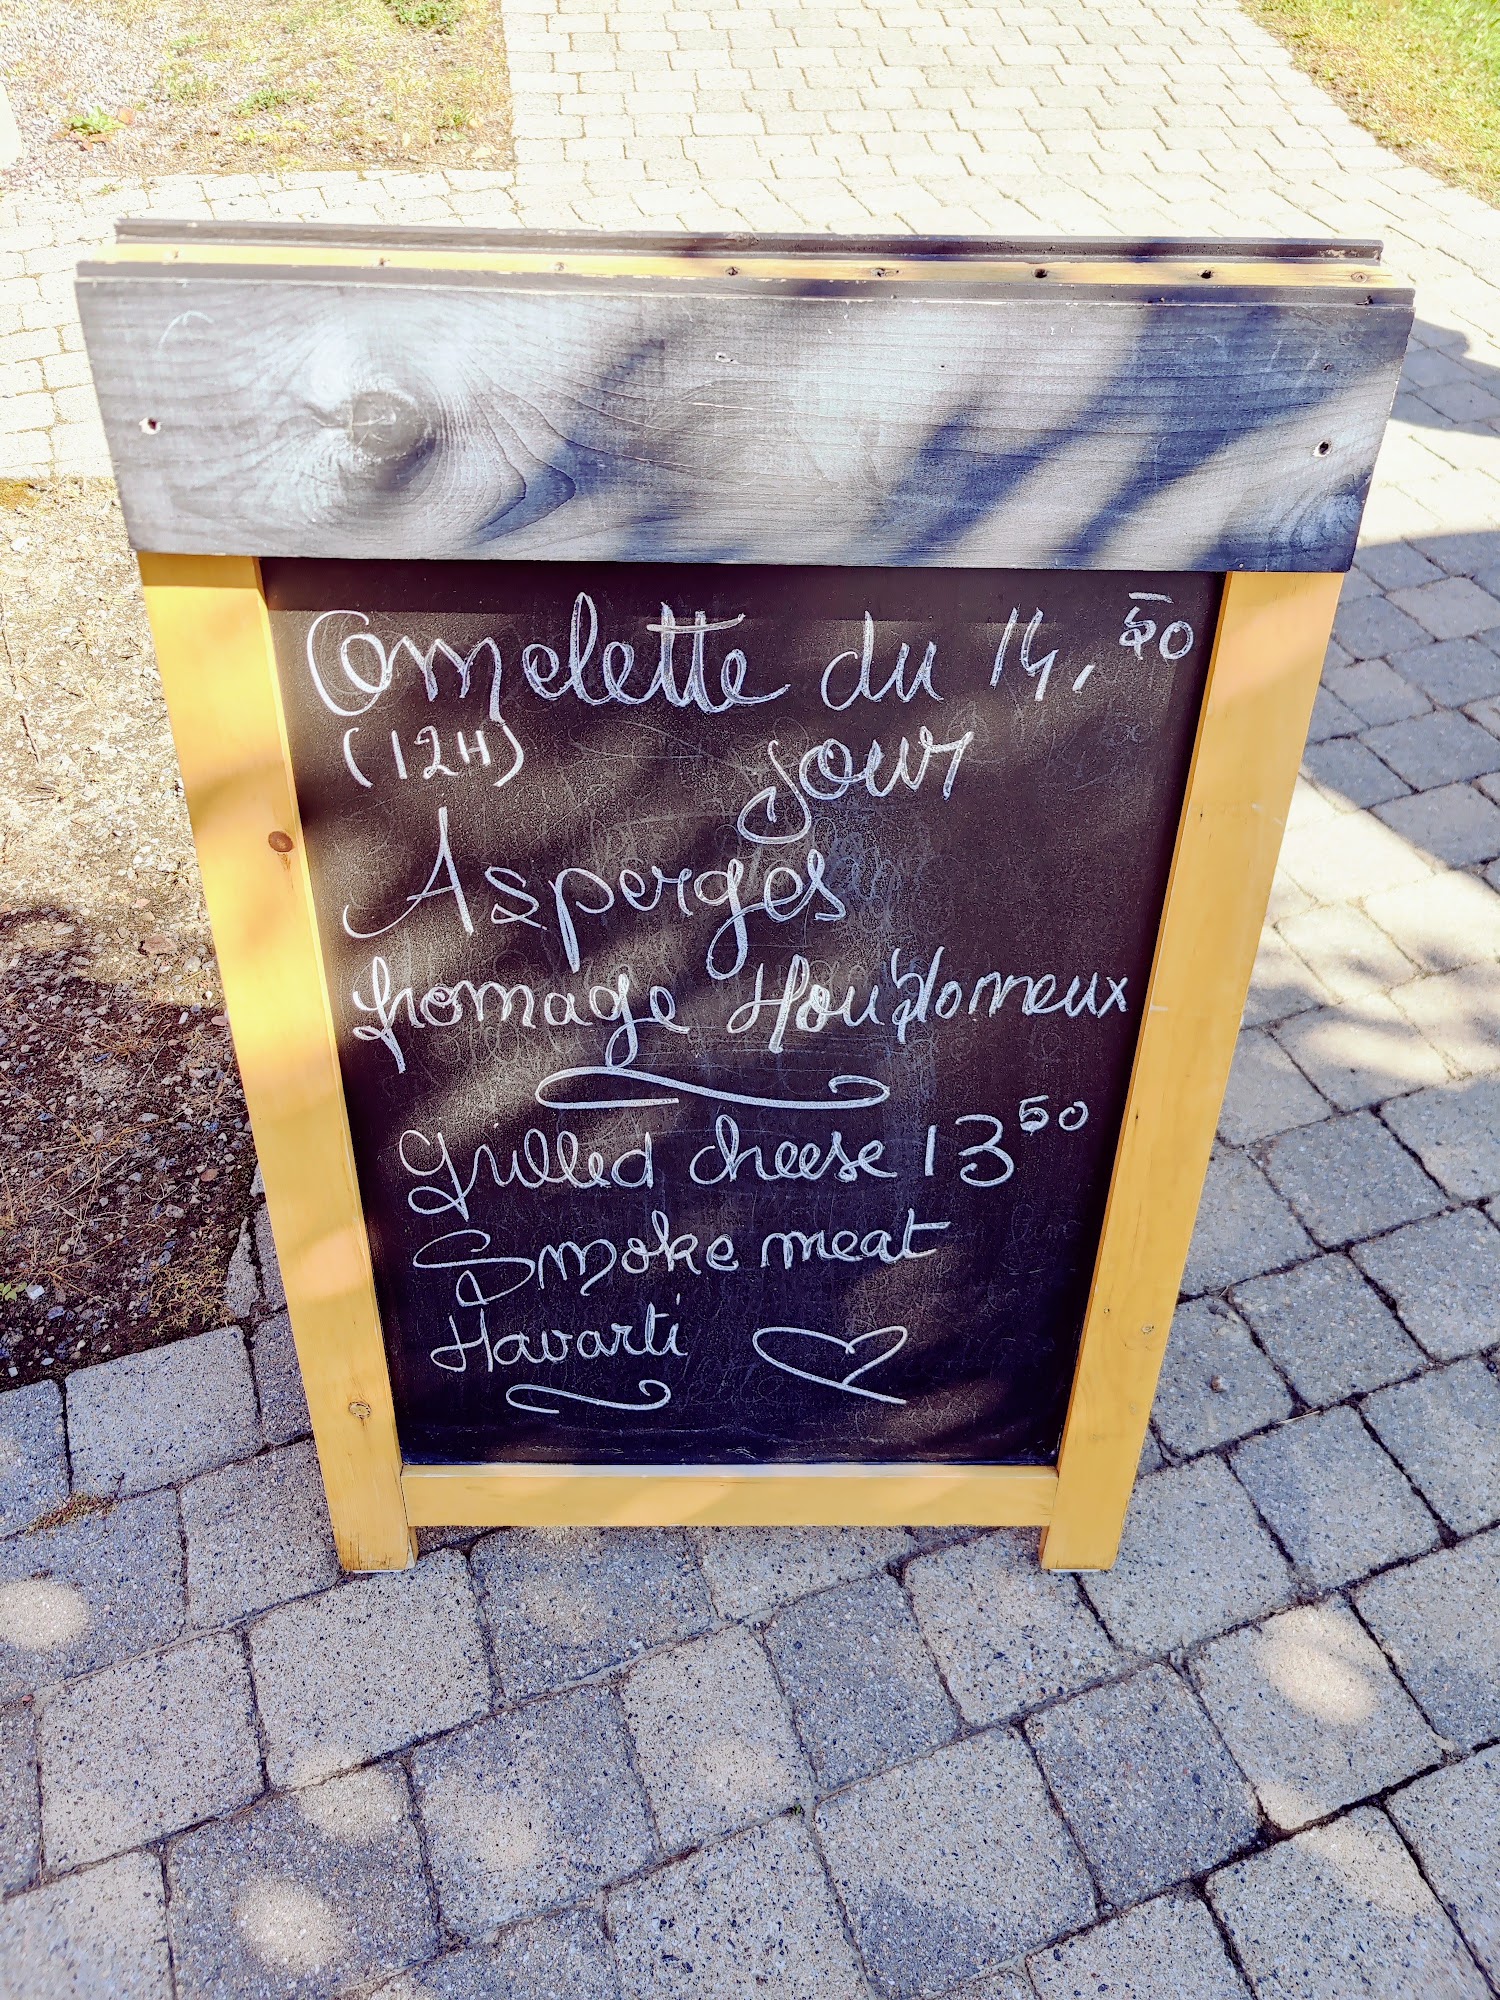 Omelette du 14,50
(12H) jour
Asperges
fromage Houblonneux
Grilled cheese 13 50
Smoke meat
Havarti